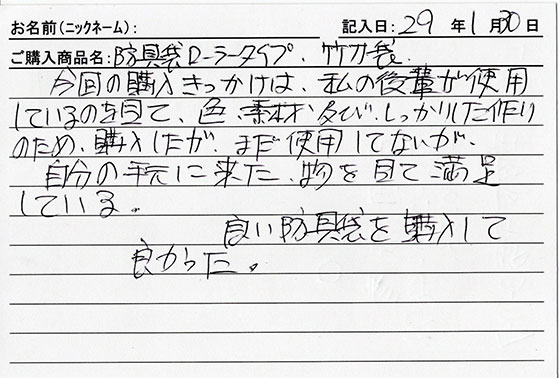 お名前(ニックネーム): 記入日: 29 年 1 月 30 日
ご購入商品名: 防具袋ローラータイプ. 竹刀袋.
今回の購入きっかけは、私の後輩が使用
しているのを目て、色、素材、及び、しっかりした作り
のため、購入したが、まだ使用してないが、
自分の手元に来た、物を目て満足
している。
良い防具袋を購入して
良かった。